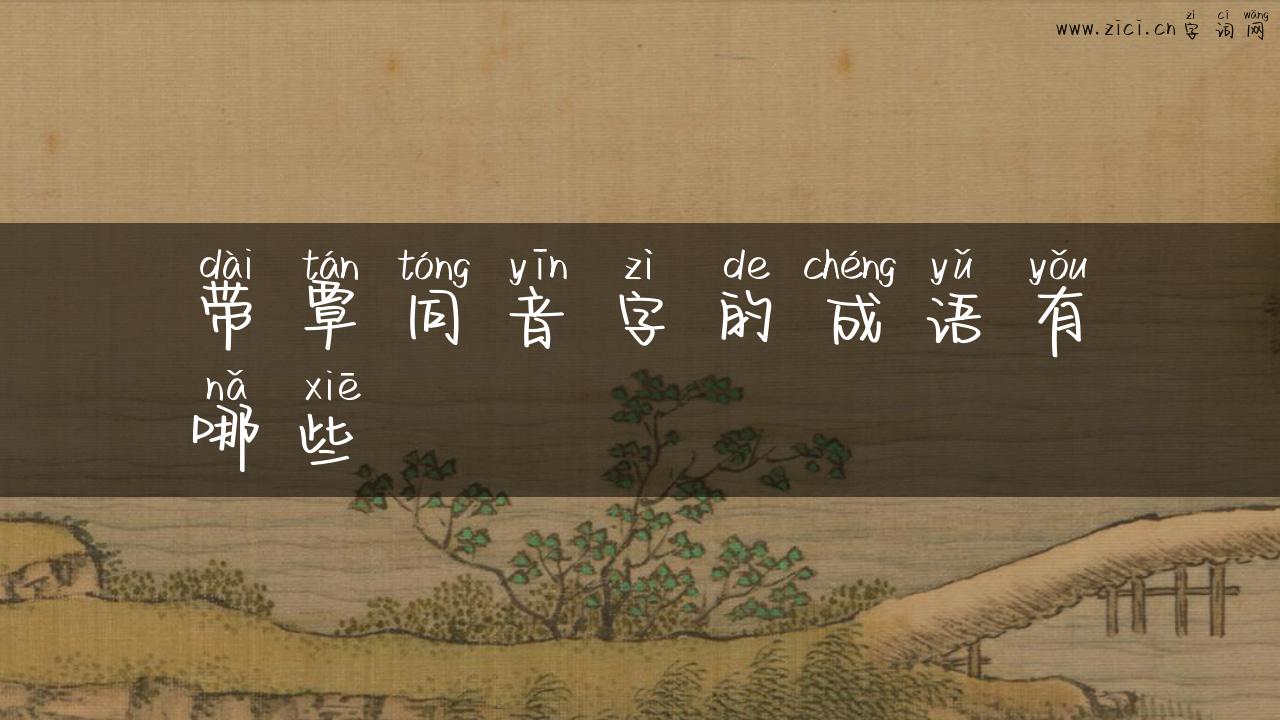 zì cí wǎng
www.zici.cn 字词网
dài tán tóng yīn zì de chéng yǔ yǒu
带覃同音字的成语有
nǎ xiē
哪些